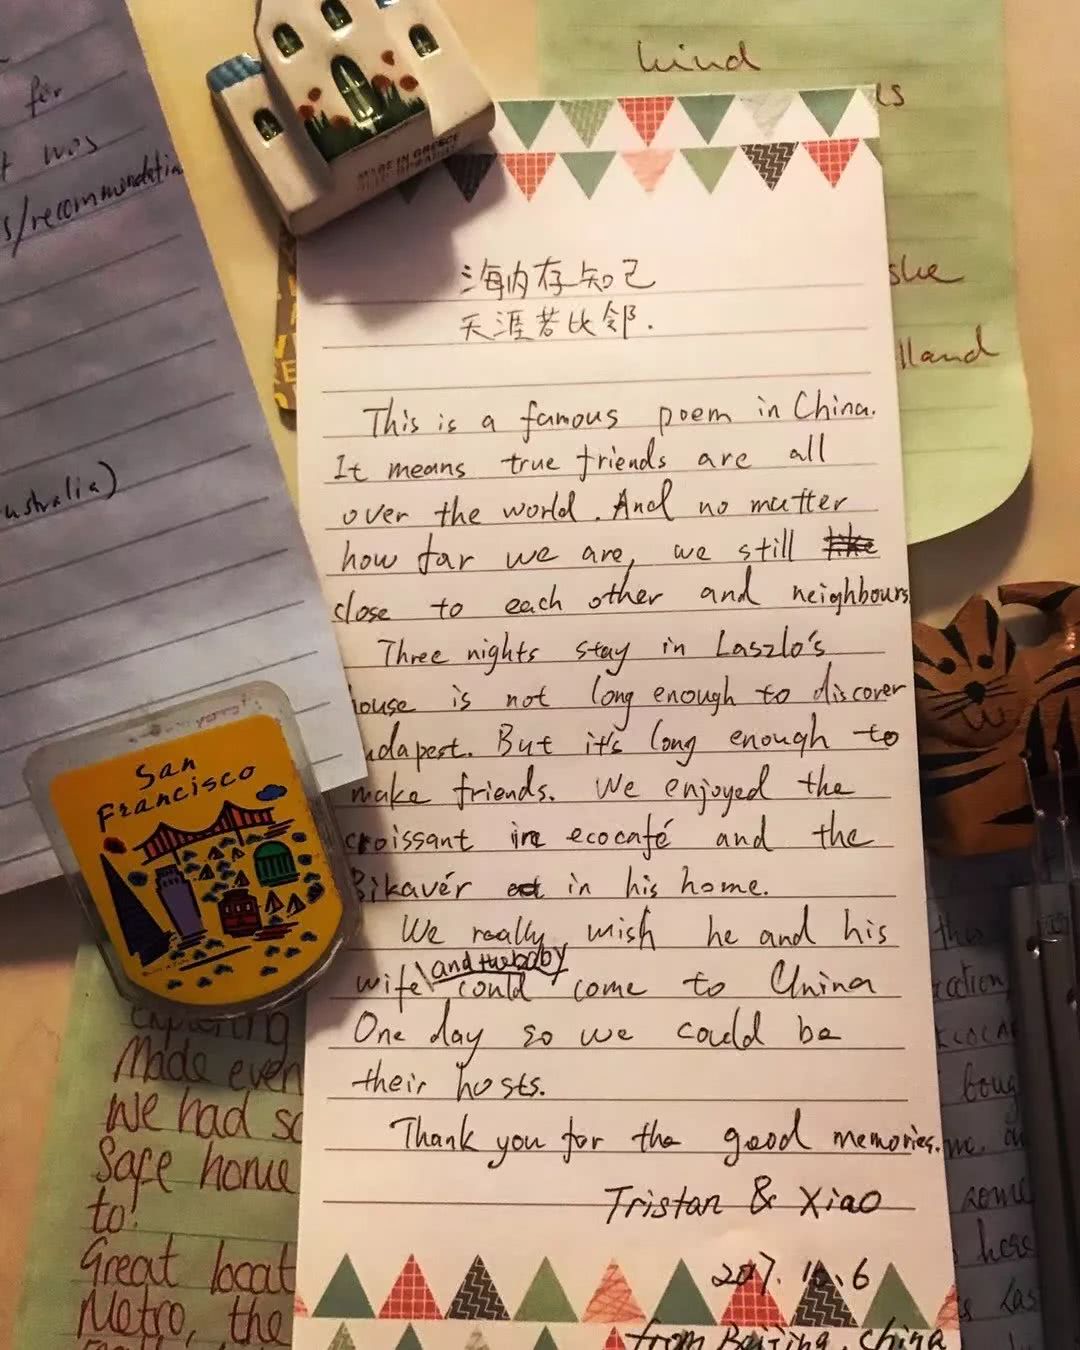 für
was
s/recommendatio
ustralia)
MADE IN GREECE
kind
she
lland
海内存知己
天涯若比邻.
This is a famous poem in China.
It means true friends are all
over the world. And no matter
how far we are, we still like
close to each other and neighbours
Three nights stay in Laszlo's
house is not long enough to discover
udapest. But it's long enough to
make friends. We enjoyed the
croissant in ecocafé and the
Bikavér in his home.
We really wish he and his
wife and the baby could come to China
One day so we could be
their hosts.
Thank you for the good memories.
Tristan & Xiao
2017. 10. 6
from Beijing, China
San
Francisco
exploring
Made even
We had so
Safe home
to!
Great locat
Metro, the
this
boug
some
here